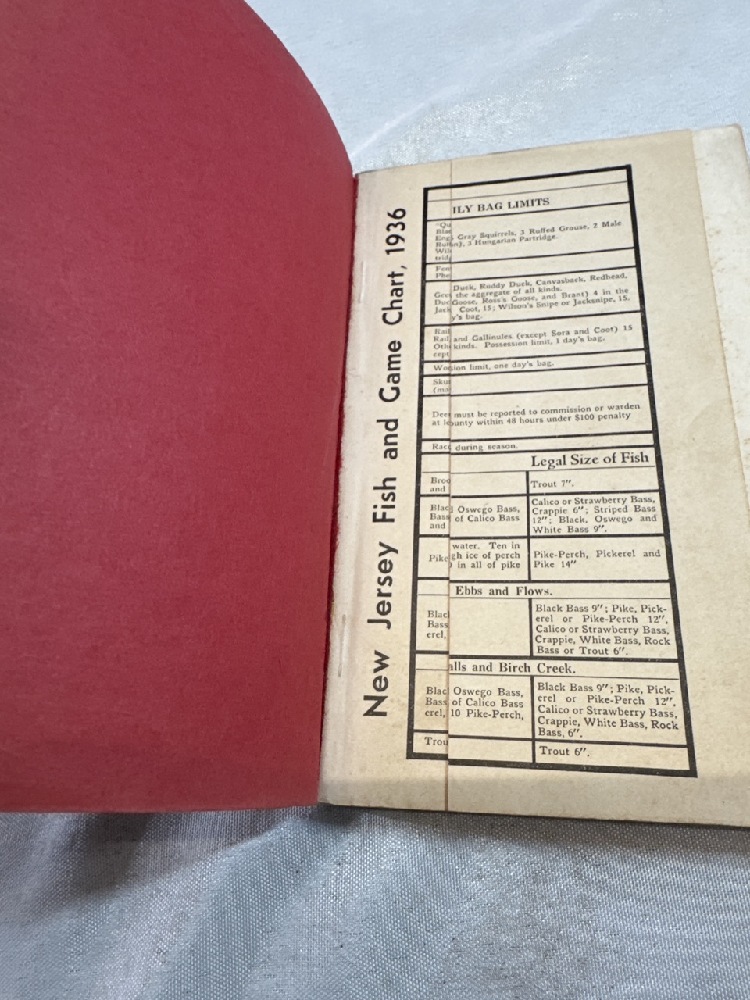 New Jersey Fish and Game Chart, 1936
ILY BAG LIMITS
Gray Squirrels, 3 Ruffed Grouse, 2 Male
3 Hungarian Partridge.
Duck, Ruddy Duck, Canvasback, Redhead,
the aggregate of all kinds.
Goose, Ross's Goose, and Brant) 4 in the
Coot, 15; Wilson's Snipe or Jacksnipe, 15.
y's bag.
Rail
Rail and Gallinules (except Sora and Coot) 15
Oth kinds. Possession limit, 1 day's bag.
cept
Wo ion limit, one day's bag.
Sku
(ma
Deer must be reported to commission or warden
at ounty within 48 hours under $100 penalty
Racc during season.
Legal Size of Fish
Broo
and
Trout 7".
Blac Oswego Bass,
Bass of Calico Bass
and
Calico or Strawberry Bass,
Crappie 6"; Striped Bass
12"; Black, Oswego and
White Bass 9".
water. Ten in
Pike gh ice of perch
in all of pike
Pike-Perch, Pickerel and
Pike 14"
Ebbs and Flows.
Blac
Bass
erel,
Black Bass 9"; Pike, Pick-
erel or Pike-Perch 12".
Calico or Strawberry Bass,
Crappie, White Bass, Rock
Bass or Trout 6".
alls and Birch Creek.
Blac Oswego Bass,
Bass of Calico Bass
erel, 10 Pike-Perch,
Black Bass 9"; Pike, Pick-
erel or Pike-Perch 12".
Calico or Strawberry Bass,
Crappie, White Bass, Rock
Bass, 6".
Trou
Trout 6".